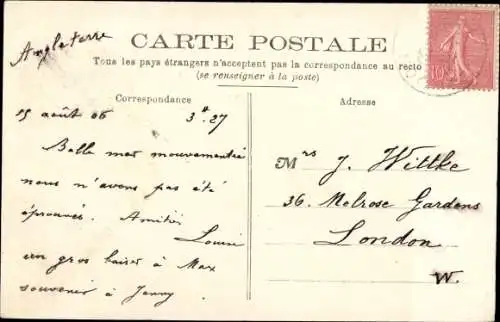 Angleterre
CARTE POSTALE
Tous les pays étrangers n'acceptent pas la correspondance au recto
(se renseigner à la poste)
Correspondance
Adresse
15 août 06 3h27
Belle mer mouvementée
nous n'avons pas été
éprouvés. Amitiés
Louise
un gros baiser à Max
souvenir à Jenny
Mrs J. Wittke
36. Melrose Gardens
London
W.
10